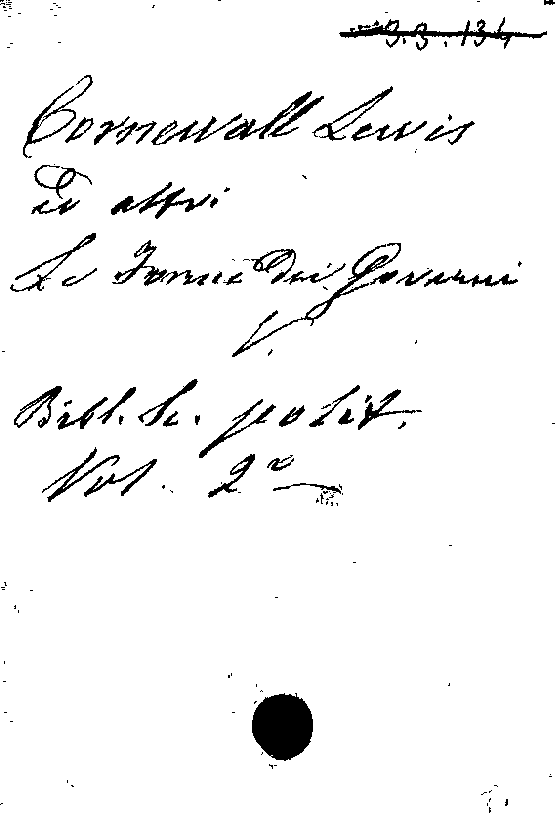 3.3.134
Cornewall Lewis
Ed altri
Le Forme dei Governi
V.
Bibl. Sc. polit.
Vol. 2º